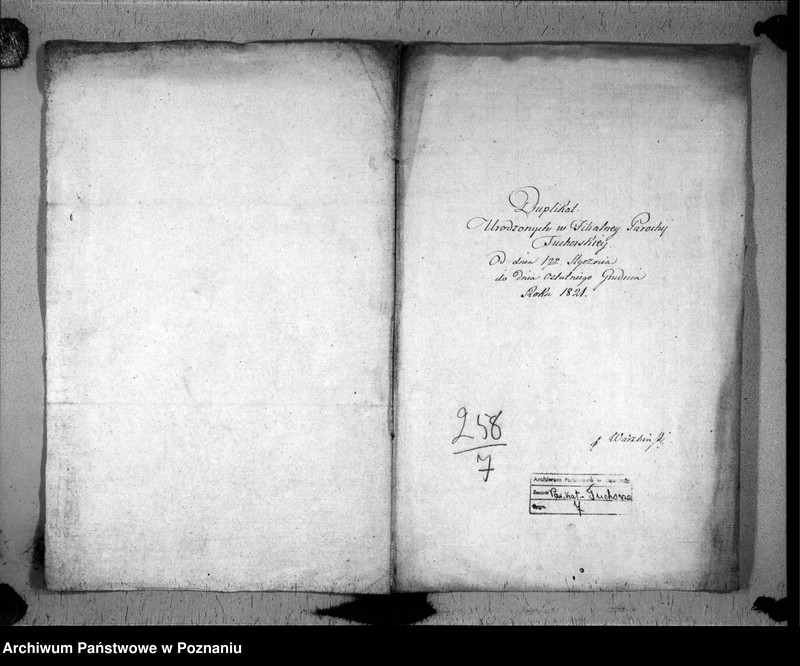 Duplikat
Urodzonych w Filialney Parochij
Tuchorskiéj
Od dnia 1go Stycznia
do Dnia Ostatniego Grudnia
Roku 1821.
258
7
Archiwum Państwowe w
Par. kat. Tuchorza
7
Archiwum Państwowe w Poznaniu